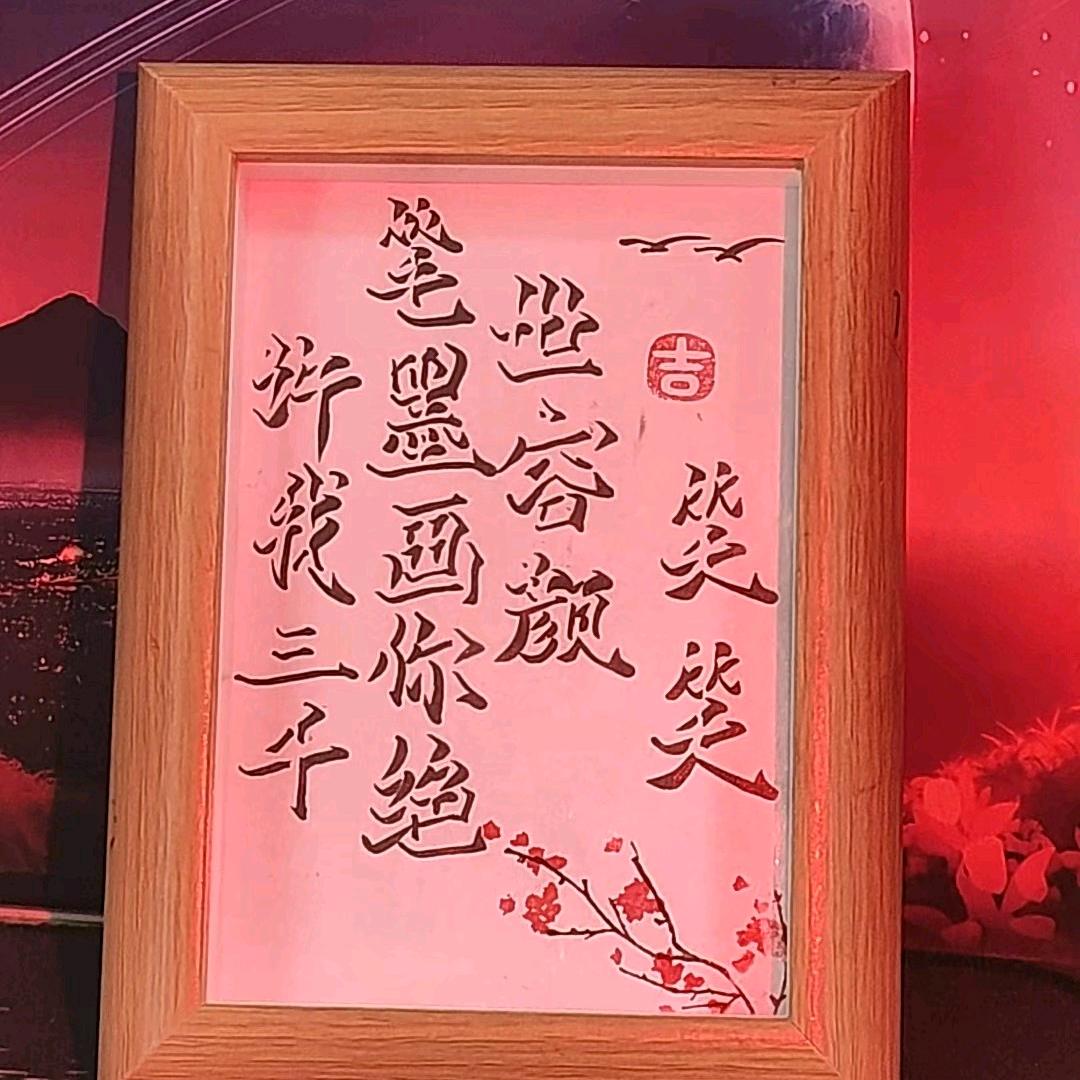 许我三千
笔墨画你绝
世容颜
吉
笑笑